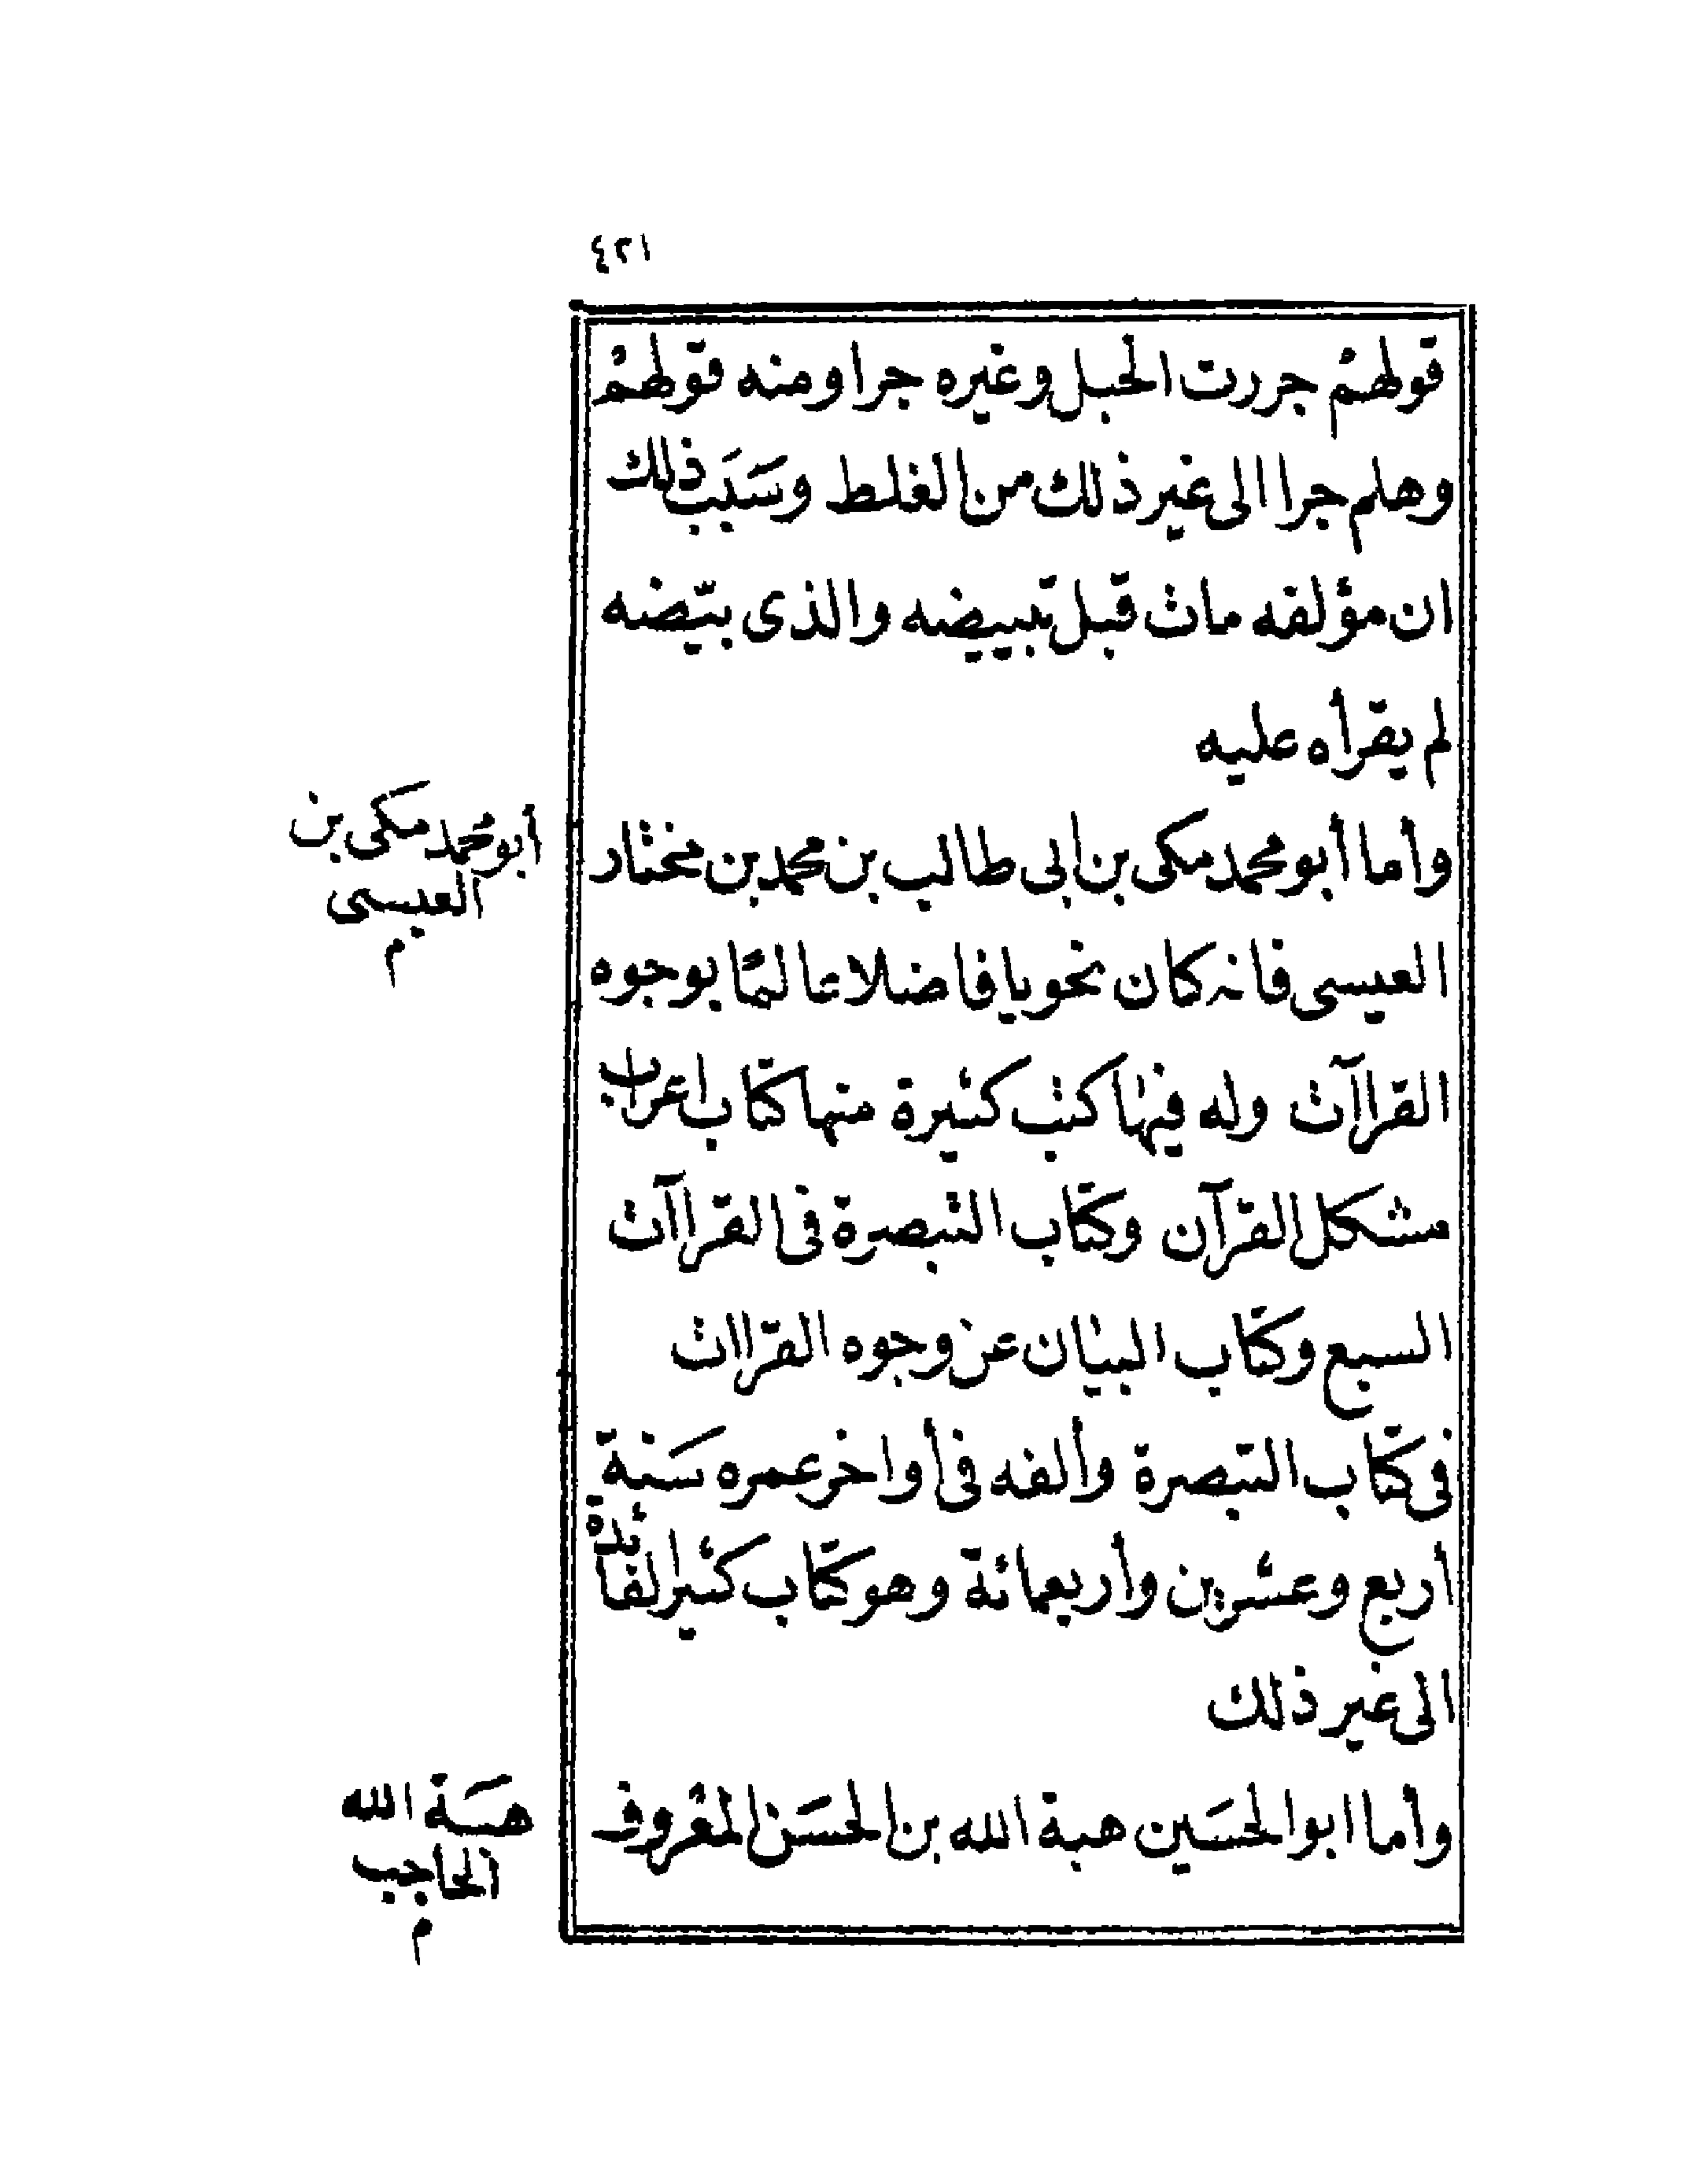 ٤٢١
قولهم جررت الحبل وغيره جرا ومنه قولهم
وهلم جرا الى غير ذلك من الغلط وسَبَب ذلك
ان مؤلفه مات قبل تبييضه والذى بيّضه
لم يقرأه عليه
وأما أبو محمد مكى بن ابى طالب بن محمد بن مختار
العيسى فانه كان نحويا فاضلا عالمًا بوجوه
القراآت وله فيها كتب كثيرة منها كتاب اعراب
مشكل القرآن وكتاب التبصرة فى القراآت
السبع وكتاب البيان عن وجوه القراات
فى كتاب التبصرة وألفه فى أواخر عمره سَنة
أربع وعشرين وأربعمائة وهو كتاب كثير الفائدة
الى غير ذلك
وأما ابو الحسَين هبة الله بن الحسَن المعْروف
أبو محمد مكى بن
العيسى
م
هبَة الله
الحاجب
م